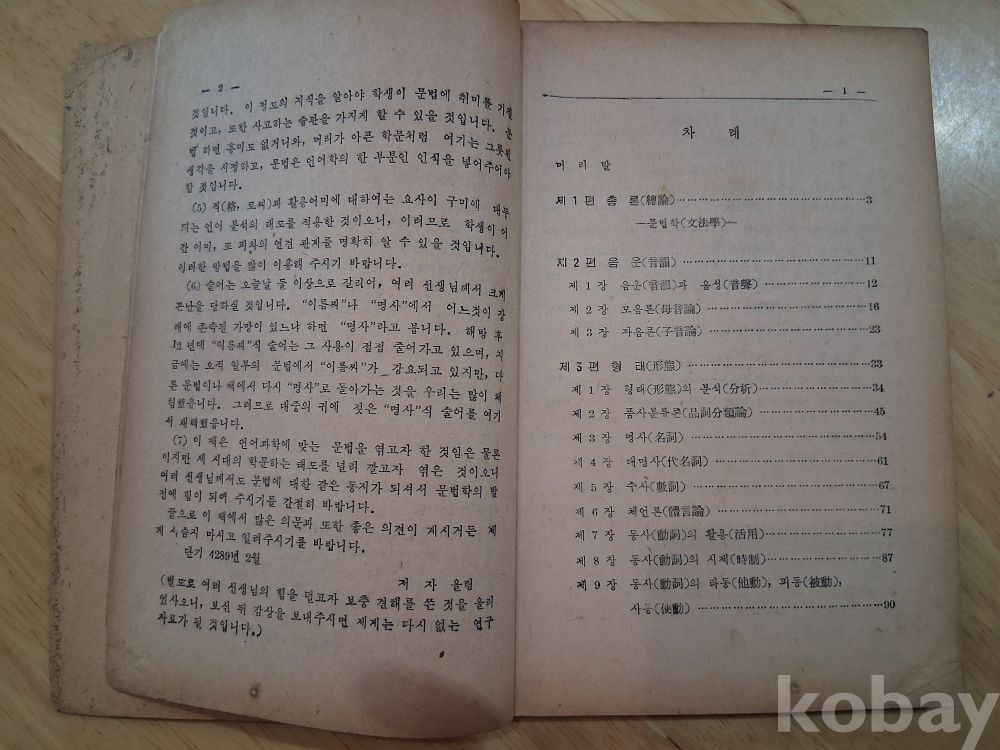 — 2 —
것입니다. 이 정도의 지식을 알아야 학생이 문법에 취미를 가질
것이고, 또한 사고하는 습관을 가지게 할 수 있을 것입니다. 문
법 하면 흥미도 없거니와, 머리가 아픈 학문처럼 여기는 그릇된
생각을 시정하고, 문법은 언어학의 한 부분인 인식을 넣어주어야
할 것입니다.
(5) 격(格, 토씨)과 활용어미에 대하여는 요사이 구미에 대두
되는 언어 분석의 태도를 적용한 것이오니, 이러므로 학생이 어
간 어미, 또 피차의 연결 관계를 명확히 알 수 있을 것입니다.
이러한 방법을 많이 이용해 주시기 바랍니다.
(6) 술어는 오늘날 둘 이상으로 갈리어, 여러 선생님께서 크게
곤난을 당하실 것입니다. “이름씨”나 “명사”에서 어느것이 장
래에 존속될 가망이 있느냐 하면 “명사”라고 봅니다. 해방 후
12 년에 “이름씨”식 술어는 그 사용이 점점 줄어가고 있으며, 지
금에는 오직 일부의 문법에서 “이름씨”가 강요되고 있지만, 다
른 문법이나 책에서 다시 “명사”로 돌아가는 것을 우리는 많이 체
험했읍니다. 그러므로 대중의 귀에 젖은 “명사”식 술어를 여기
서 채택했읍니다.
(7) 이 책은 언어과학에 맞는 문법을 엮고자 한 것임은 물론
이지만 새 시대의 학문하는 태도를 널리 깔고자 엮은 것이오니
여러 선생님께서도 문법에 대한 같은 동지가 되셔서 문법학의 발
전에 힘이 되어 주시기를 간절히 바랍니다.
끝으로 이 책에서 많은 의문과 또한 좋은 의견이 계시거든 제
제 시슴지 마시고 일러주시기를 바랍니다.
단기 4289년 2월
저 자 올림
(별도로 여러 선생님의 힘을 덜고자 보충 견해를 쓴 것을 올리
었사오니, 보신 뒤 감상을 보내주시면 제게는 다시 없는 연구
자료가 될 것입니다.)
— 1 —
차 례
머 리 말
제 1 편 총 론(總論) ……………………3
—문법학(文法學)—
제 2 편 음 운(音韻) ……………………11
제 1 장 음운(音韻)과 음성(音聲) ……………………12
제 2 장 모음론(母音論) ……………………16
제 3 장 자음론(子音論) ……………………23
제 3 편 형 태(形態) ……………………33
제 1 장 형태(形態)의 분석(分析) ……………………34
제 2 장 품사분류론(品詞分類論) ……………………45
제 3 장 명사(名詞) ……………………54
제 4 장 대명사(代名詞) ……………………61
제 5 장 수사(數詞) ……………………67
제 6 장 체언론(體言論) ……………………71
제 7 장 동사(動詞)의 활용(活用) ……………………77
제 8 장 동사(動詞)의 시제(時制) ……………………87
제 9 장 동사(動詞)의 타동(他動), 피동(被動),
사동(使動) ……………………90
kobay